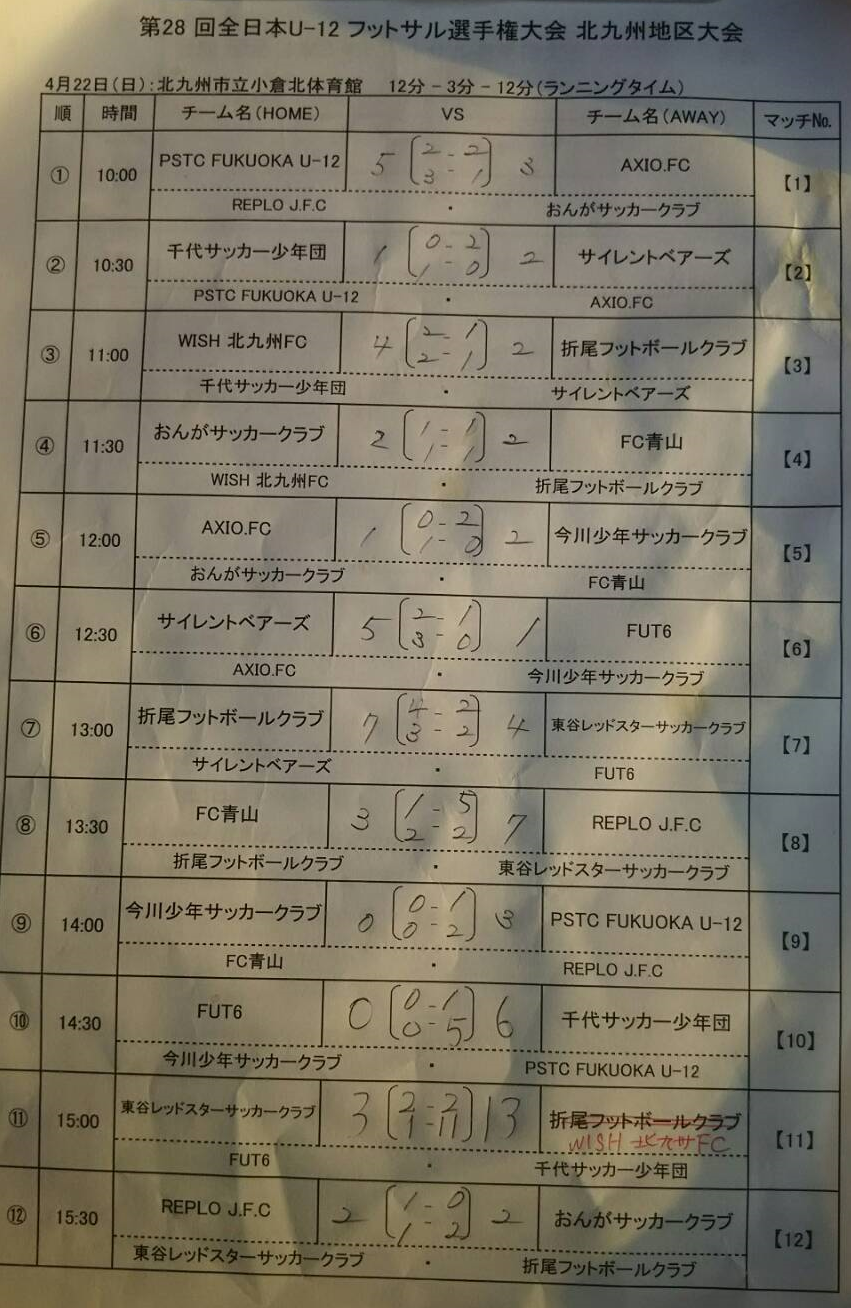 第28 回全日本U-12 フットサル選手権大会 北九州地区大会
4月22日(日):北九州市立小倉北体育館 12分-3分-12分(ランニングタイム)
順 時間 チーム名(HOME) VS チーム名(AWAY) マッチNo.
① 10:00 PSTC FUKUOKA U-12 5 (2-2 3-1) 3 AXIO.FC 【1】
REPLO J.F.C ・ おんがサッカークラブ
② 10:30 千代サッカー少年団 1 (0-2 1-0) 2 サイレントベアーズ 【2】
PSTC FUKUOKA U-12 ・ AXIO.FC
③ 11:00 WISH 北九州FC 4 (2-1 2-1) 2 折尾フットボールクラブ 【3】
千代サッカー少年団 ・ サイレントベアーズ
④ 11:30 おんがサッカークラブ 2 (1-1 1-1) 2 FC青山 【4】
WISH 北九州FC ・ 折尾フットボールクラブ
⑤ 12:00 AXIO.FC 1 (0-2 1-0) 2 今川少年サッカークラブ 【5】
おんがサッカークラブ ・ FC青山
⑥ 12:30 サイレントベアーズ 5 (2-1 3-0) 1 FUT6 【6】
AXIO.FC ・ 今川少年サッカークラブ
⑦ 13:00 折尾フットボールクラブ 7 (4-2 3-2) 4 東谷レッドスターサッカークラブ 【7】
サイレントベアーズ ・ FUT6
⑧ 13:30 FC青山 3 (1-5 2-2) 7 REPLO J.F.C 【8】
折尾フットボールクラブ ・ 東谷レッドスターサッカークラブ
⑨ 14:00 今川少年サッカークラブ 0 (0-1 0-2) 3 PSTC FUKUOKA U-12 【9】
FC青山 ・ REPLO J.F.C
⑩ 14:30 FUT6 0 (0-1 0-5) 6 千代サッカー少年団 【10】
今川少年サッカークラブ ・ PSTC FUKUOKA U-12
⑪ 15:00 東谷レッドスターサッカークラブ 3 (2-2 1-11) 13 折尾フットボールクラブ 【11】
WISH 北九州FC
FUT6 ・ 千代サッカー少年団
⑫ 15:30 REPLO J.F.C 2 (1-0 1-2) 2 おんがサッカークラブ 【12】
東谷レッドスターサッカークラブ ・ 折尾フットボールクラブ